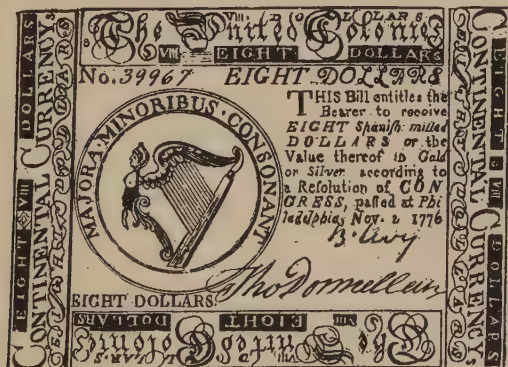 VIII DOLLARS
The United Colonies
VIII EIGHT DOLLARS
No. 39967 EIGHT DOLLARS
THIS Bill entitles the
Bearer to receive
EIGHT Spanish milled
DOLLARS or the
Value thereof in Gold
or Silver according to
a Resolution of CON
GRESS, passed at Phi
ladelphia, Nov. 2 1776
B. Levy
Tho Donnellan
MAJORA MINORIBUS CONSONANT
EIGHT DOLLARS.
EIGHT VIII DOLLARS
CONTINENTAL CURRENCY
CONTINENTAL CURRENCY
EIGHT & VIII DOLLARS
VIII EIGHT DOLLARS
The United Colonies
VIII DOLLARS